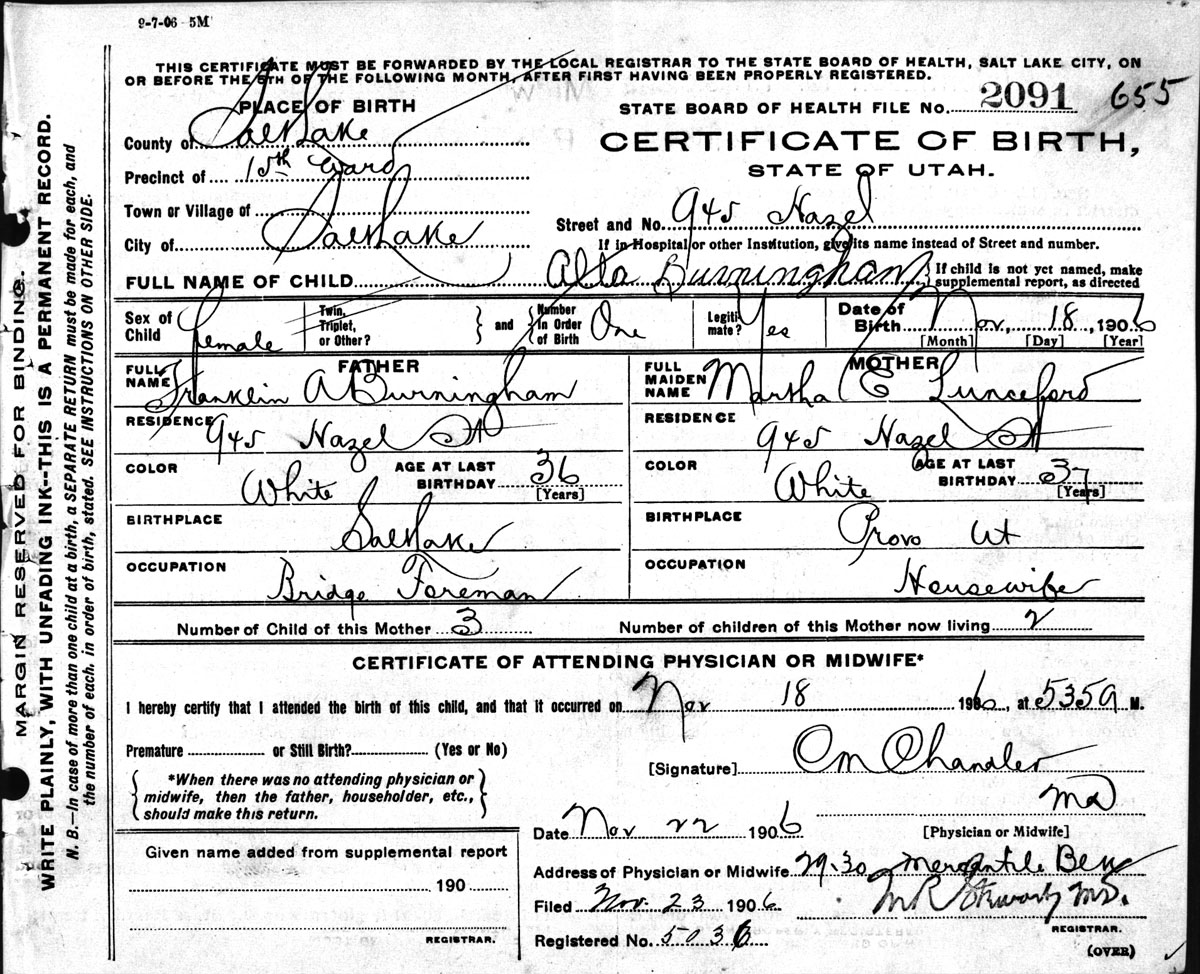 9-7-06 5M
THIS CERTIFICATE MUST BE FORWARDED BY THE LOCAL REGISTRAR TO THE STATE BOARD OF HEALTH, SALT LAKE CITY, ON
OR BEFORE THE 5TH OF THE FOLLOWING MONTH, AFTER FIRST HAVING BEEN PROPERLY REGISTERED.
PLACE OF BIRTH
STATE BOARD OF HEALTH FILE No. 2091 655
County of Salt Lake
CERTIFICATE OF BIRTH,
STATE OF UTAH.
Precinct of 15th Ward
Town or Village of
Street and No. 945 Hazel
City of Salt Lake
If in Hospital or other Institution, give its name instead of Street and number.
FULL NAME OF CHILD Alta Burningham } If child is not yet named, make
supplemental report, as directed
Sex of Child Female
Twin, Triplet, or Other? } and { Number in Order of Birth One
Legitimate? Yes
Date of Birth Nov, 18, 1906
[Month] [Day] [Year]
FATHER
FULL NAME Franklin A Burningham
RESIDENCE 945 Hazel St
COLOR White
AGE AT LAST BIRTHDAY 36
[Years]
BIRTHPLACE Salt Lake
OCCUPATION Bridge Foreman
MOTHER
FULL MAIDEN NAME Martha E Lunceford
RESIDENCE 945 Hazel St
COLOR White
AGE AT LAST BIRTHDAY 37
[Years]
BIRTHPLACE Provo Ut
OCCUPATION Housewife
Number of Child of this Mother 3 Number of children of this Mother now living 2
CERTIFICATE OF ATTENDING PHYSICIAN OR MIDWIFE*
I hereby certify that I attended the birth of this child, and that it occurred on Nov 18 1906, at 535 A M.
Premature or Still Birth? (Yes or No)
[Signature] Chandler
MD
{ *When there was no attending physician or
midwife, then the father, householder, etc.,
should make this return. }
Date Nov 22 1906
[Physician or Midwife]
Given name added from supplemental report
190
REGISTRAR.
Address of Physician or Midwife 29-30 Mercantile
Filed Nov. 23 1906 M.D.
REGISTRAR.
Registered No. 5036
(OVER)
MARGIN RESERVED FOR BINDING.
WRITE PLAINLY, WITH UNFADING INK--THIS IS A PERMANENT RECORD.
N. B.—In case of more than one child at a birth, a SEPARATE RETURN must be made for each, and
the number of each, in order of birth, stated. SEE INSTRUCTIONS ON OTHER SIDE.